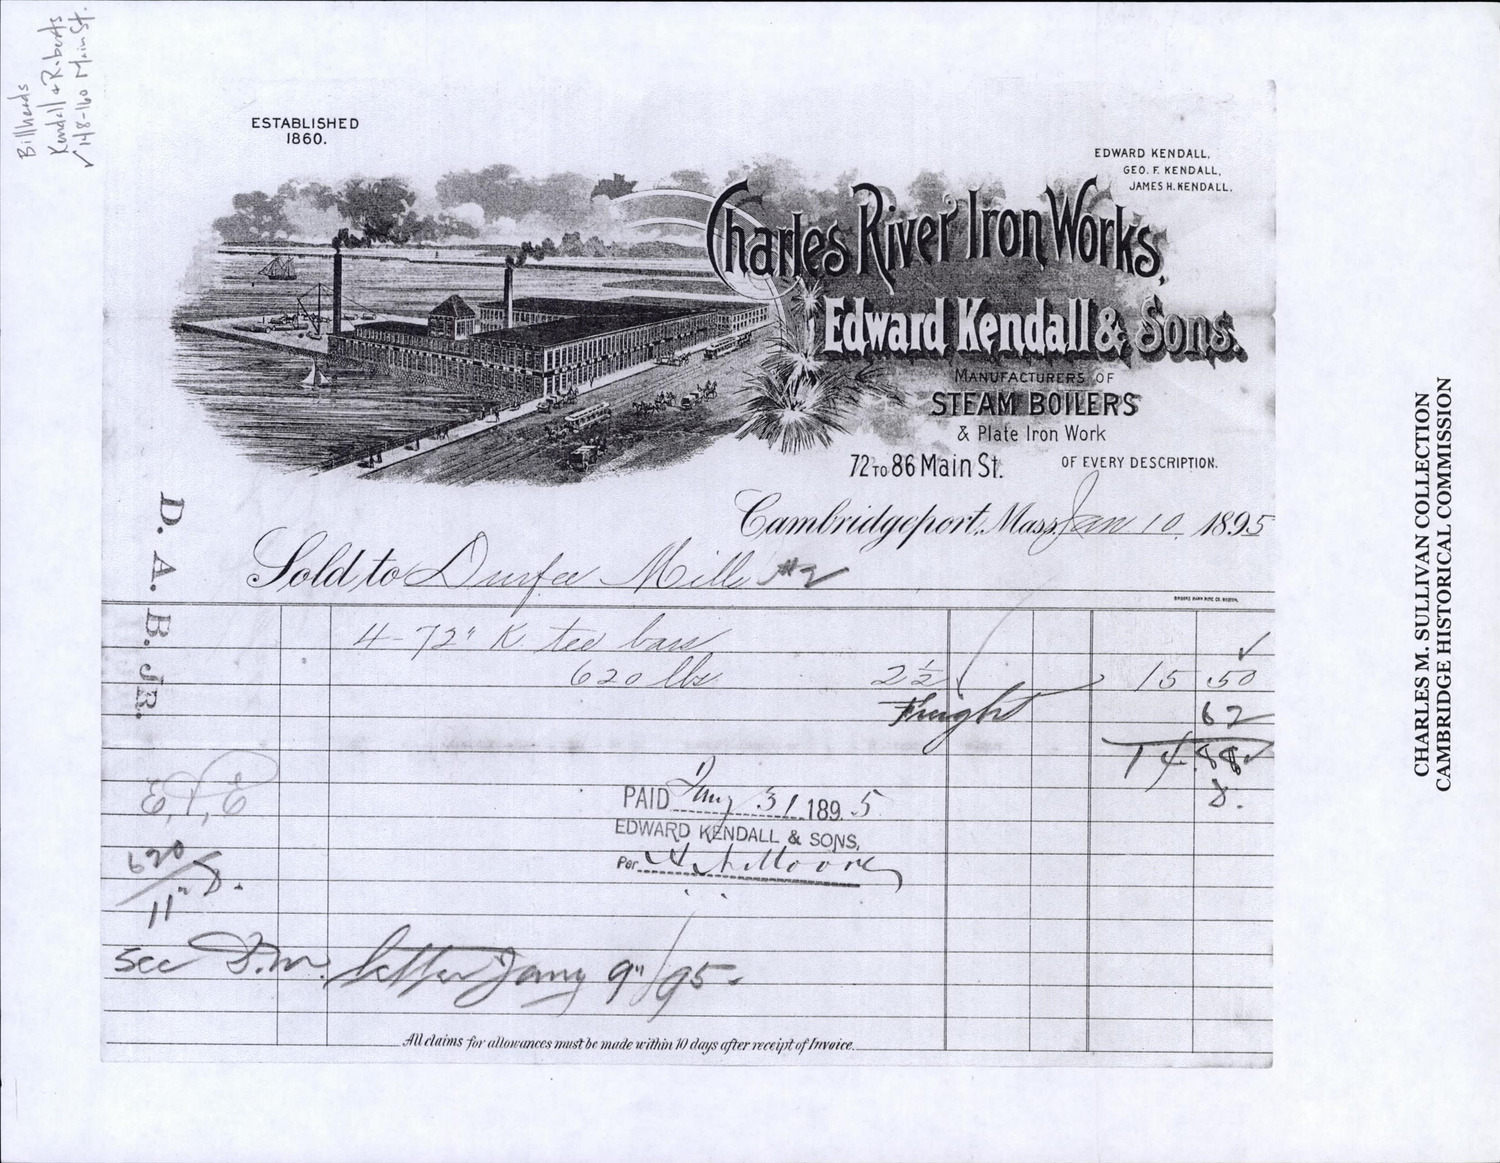 Billheads
Kendall & Roberts
✓ 148-160 Main St.
ESTABLISHED
1860.
EDWARD KENDALL,
GEO. F. KENDALL,
JAMES H. KENDALL.
Charles River Iron Works,
Edward Kendall & Sons.
MANUFACTURERS OF
STEAM BOILERS
& Plate Iron Work
OF EVERY DESCRIPTION.
72 TO 86 Main St.
Cambridgeport, Mass. Jan 10 1895
Sold to Durfee Mills #2
4-72" K tee bars
620 lbs 2½ 15.50
Freight 62
14.88
PAID Jany 31 1895
EDWARD KENDALL & SONS,
Per
D. A. B. JR.
620
11"
See letter Jany 9"/95
All claims for allowances must be made within 10 days after receipt of Invoice.
CHARLES M. SULLIVAN COLLECTION
CAMBRIDGE HISTORICAL COMMISSION